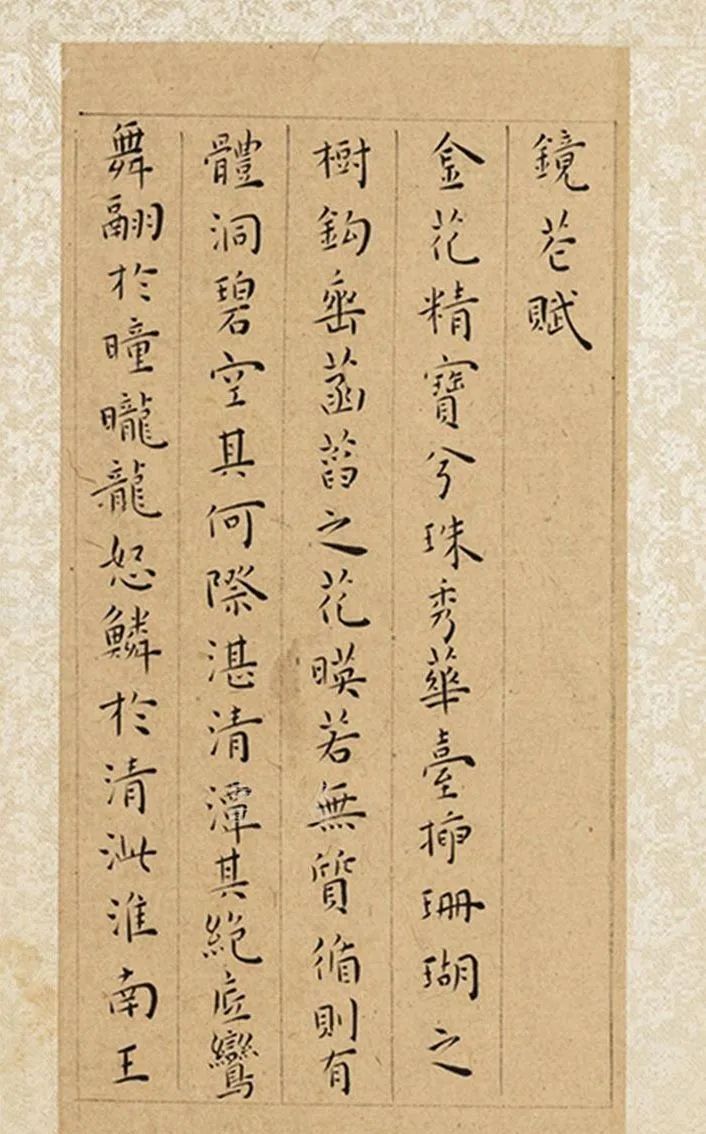 鏡花賦
金花精寶兮珠秀華臺珊瑚之
樹鈎垂菡萏之花暎若無質循則有
體洞碧空其何際湛清潭其絶底鸞
舞翮於曈曨龍怒鱗於清泚淮南王